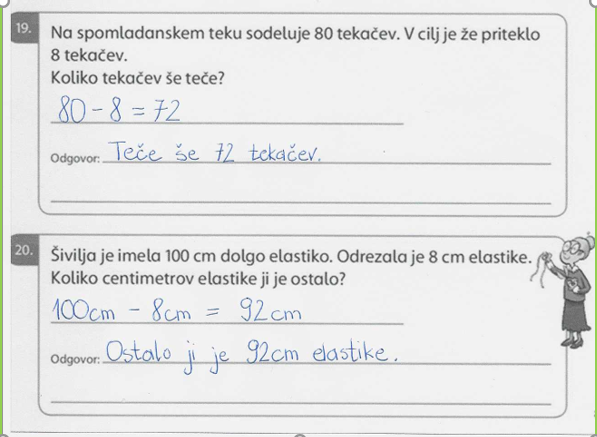 19.
Na spomladanskem teku sodeluje 80 tekačev. V cilj je že priteklo
8 tekačev.
Koliko tekačev še teče?
80 - 8 = 72
Odgovor: Teče še 72 tekačev.
20.
Šivilja je imela 100 cm dolgo elastiko. Odrezala je 8 cm elastike.
Koliko centimetrov elastike ji je ostalo?
100cm - 8cm = 92cm
Odgovor: Ostalo ji je 92cm elastike.